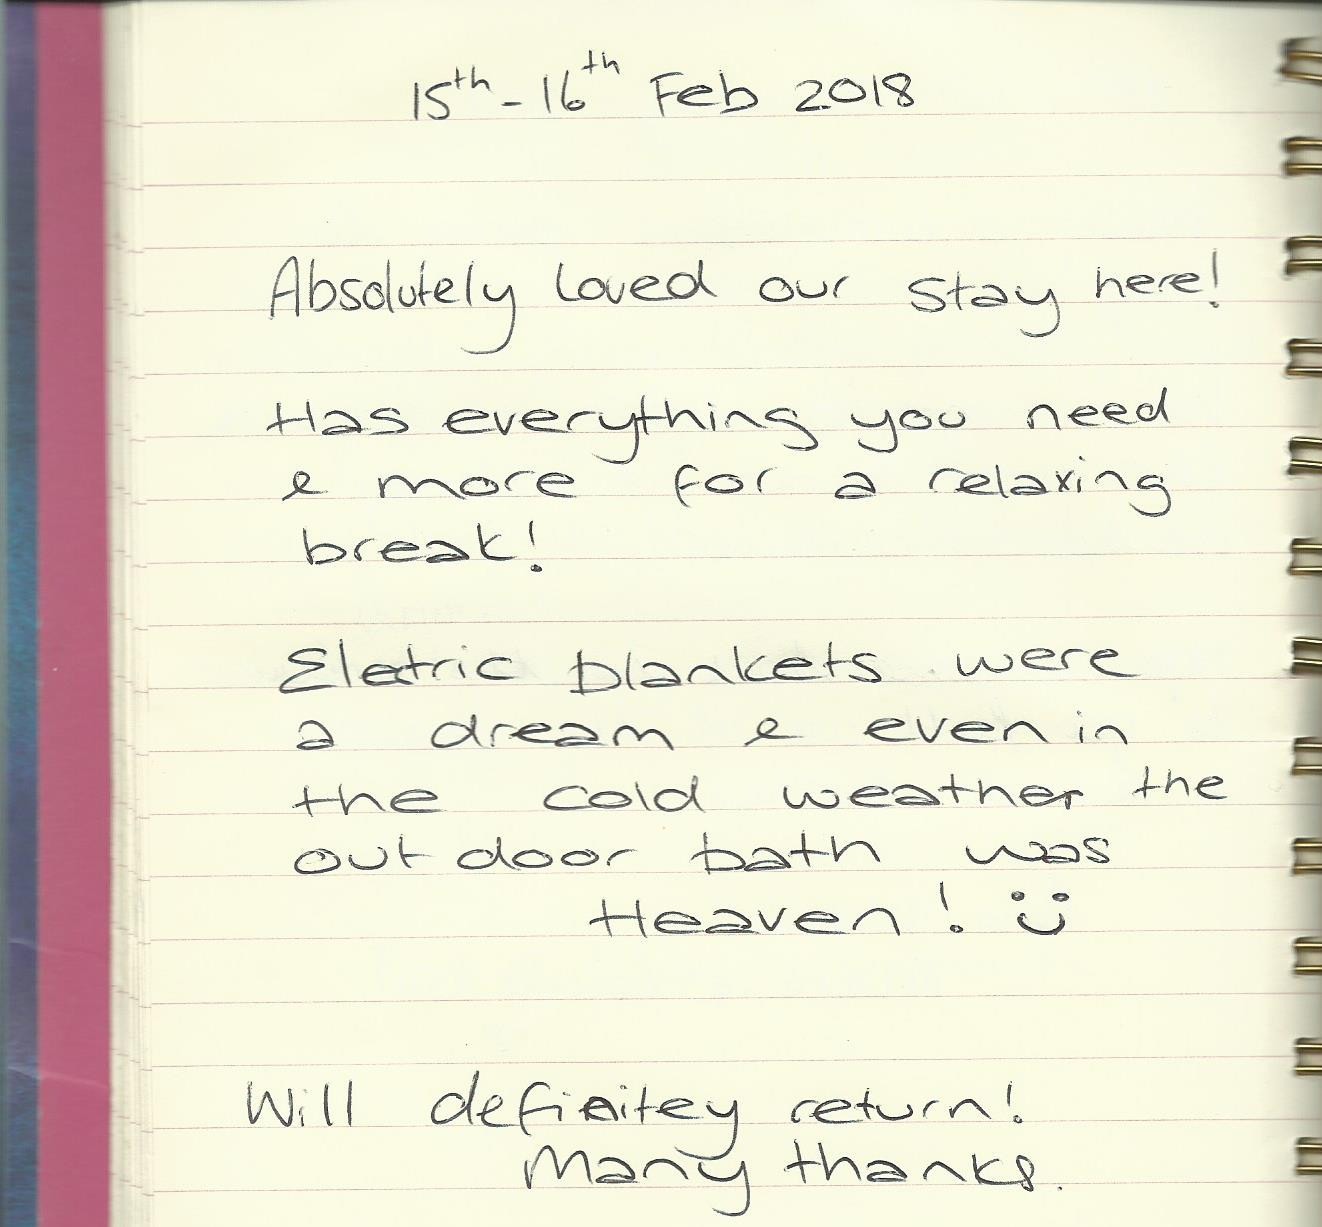 15th - 16th Feb 2018
Absolutely loved our stay here!
Has everything you need
& more for a relaxing
break!
Eletric blankets were
a dream & even in
the cold weather the
outdoor bath was
Heaven! :)
Will definitey return!
Many thanks.